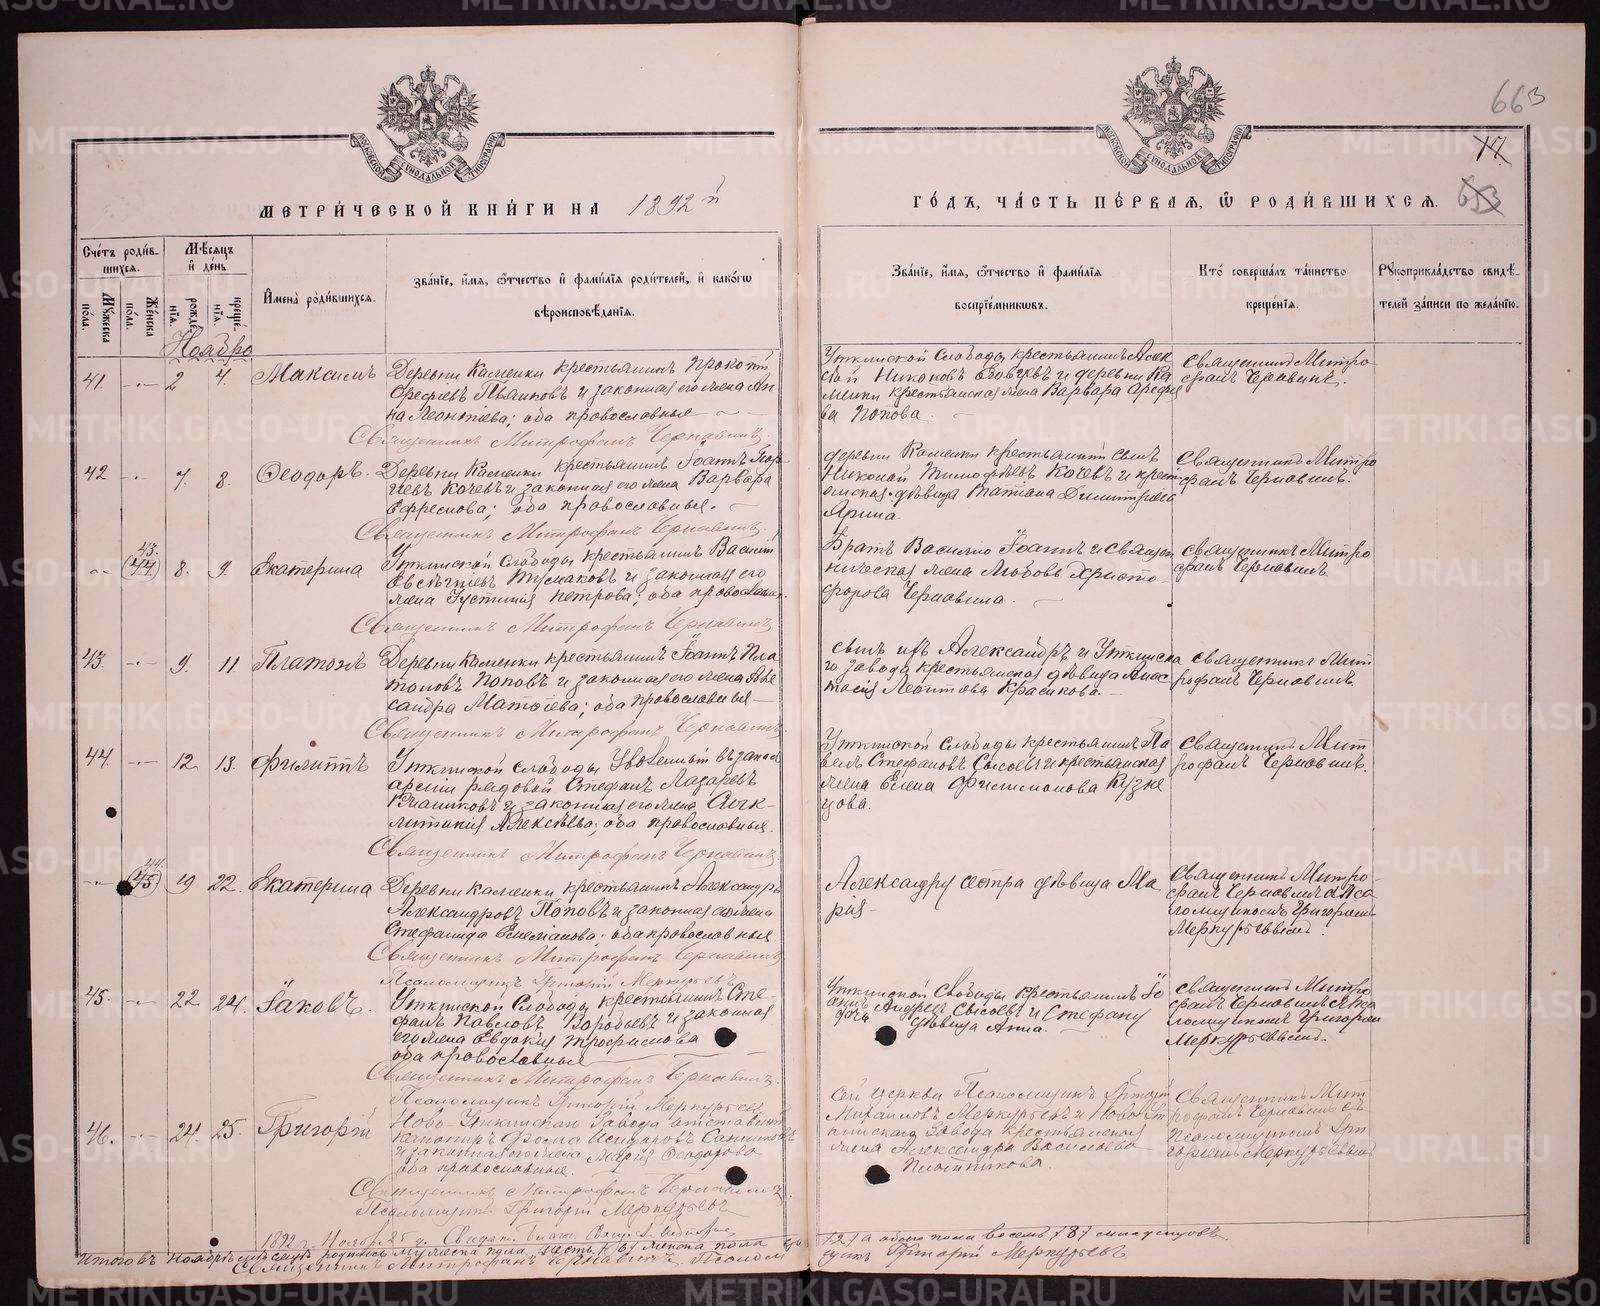 663
17.
653
МОСКОВСКОЙ СУНОДАЛЬНОЙ ТИПОГРАФИИ
МОСКОВСКОЙ СУНОДАЛЬНОЙ ТИПОГРАФИИ
МЕТРИ́ЧЕСКОЙ КНИ́ГИ НА 1892й
ГО́ДЪ, ЧА́СТЬ ПЕ́РВАЯ, Ѿ РОДИ́ВШИХСЯ.
Сче́тъ роди́в-
шихся.
Му́жеска по́ла.
Же́нска по́ла.
Мѣ́сяцъ
и҆ де́нь
рожде́нїя.
креще́нїя.
И҆мена̀ роди́вшихся.
Зва́нїе, и҆́мя, ѻ҆́тчество и҆ фами́лїя роди́телей, и҆ како́гѡ
вѣроисповѣ́данїя.
Зва́нїе, и҆́мя, ѻ҆́тчество и҆ фами́лїя
воспрїе́мниковъ.
Кто̀ соверша́лъ та́инство
креще́нїя.
Рꙋкоприкла́дство свидѣ́-
телей за́писи по жела́нїю.
Ноябрь
41. -.- 2 4. Максимъ
Деревни Каменки крестьянинъ Прокопій
Сергѣевъ Пьянковъ и законная его жена Ан-
на Леонтіева; оба православные
Священникъ Митрофанъ Чернавинъ
Уткинской Слободы крестьянинъ Алек
сѣй Никоновъ и деревни Ка
менки крестьянская жена Варвара
ва Попова.
Священникъ Митро
фанъ Чернавинъ.
42 -.- 7. 8. Ѳеодоръ.
Деревни Каменки крестьянинъ Іоаннъ
Кочевъ и законная его жена Варвара
Ефремова; оба православныя.
Священникъ Митрофанъ Чернавинъ.
деревни Каменки крестьянскій сынъ
Николай Тимофѣевъ Кочевъ и кресть
янская дѣвица Татіана Димитріева
Ярина
Священникъ Митро
фанъ Чернавинъ.
43.
-- (44) 8. 9. Екатерина
Уткинской Слободы крестьянинъ Василій
Евсѣгнѣевъ Тумаковъ и законная его
жена Іустинія Петрова; оба православныя.
Священникъ Митрофанъ Чернавинъ
Братъ Василію Іоаннъ и Священ
ническая жена Любовь Христо-
форова Чернавина.
Священникъ Митро
фанъ Чернавинъ
43. -.- 9. 11 Платонъ
Деревни Каменки крестьянинъ Іоаннъ Пла
тоновъ Поповъ и законная его жена Алек
сандра Матѳіева; оба православныя
Священникъ Митрофанъ Чернавинъ
сынъ ихъ Александръ и Уткинска
го завода крестьянская дѣвица Анас-
тасія Леонтова Красикова.
Священникъ Мит
рофанъ Чернавинъ
44. -.- 12 13. Филиппъ
Уткинской Слободы Уволенный въ запас
арміи рядовой Стефанъ Лазаревъ
и законная его жена
Алексѣева; оба православныя.
Священникъ Митрофанъ Чернавинъ
Уткинской Слободы крестьянинъ Па
велъ Стефановъ Сысоевъ и крестьянская
жена Елена Филимонова Кузне
цова.
Священникъ Мит
рофанъ Чернавинъ.
44.
-- (45) 19 22. Екатерина
Деревни Каменки крестьянинъ Александръ
Александровъ Поповъ и законная его жена
Стефанида Емеліанова; оба православныя.
Священникъ Митрофанъ Чернавинъ
Псаломщикъ Григорій Меркурьевъ
Александру сестра дѣвица Ма
рія-
Священникъ Митро-
фанъ Чернавинъ съ Пса-
ломщикомъ Григоріемъ
Меркурьевымъ.
45. -.- 22 24. Іаковъ.
Уткинской Слободы крестьянинъ Сте
фанъ Павловъ Воробьевъ и законная
его жена Евдокія Трофимова
оба православныя
Священникъ Митрофанъ Чернавинъ
Псаломщикъ Григорій Меркурьевъ
Уткинской Слободы крестьянинъ Іо
аннъ Андреевъ Сысоевъ и Стефану
дочь дѣвица Анна.
Священникъ Митро
фанъ Чернавинъ съ Пса
ломщикомъ Григоріемъ
Меркурьевымъ.
46. -.- 24. 25. Григорій
Ново-Уткинскаго Завода отставной
Ѳома Исидоровъ Санниковъ
и законная его жена Марія Ѳеодорова
оба православные.
Священникъ Митрофанъ Чернавинъ.
Псаломщикъ Григорій Меркурьевъ
сей церкви Псаломщикъ Григорій
Михайловъ Меркурьевъ и Ново-Ут
кинскаго Завода крестьянская
жена Александра Васильева
Плотникова.
Священникъ Мит
рофанъ Чернавинъ съ
Псаломщикомъ Гри
горіемъ Меркурьевымъ
1892 г. Ноябр. 25 д.
Итого въ Ноябрѣ мѣсяцѣ родилось мужеска пола шесть /6/ женска пола два /2/ а обоего пола восемь /8/ младенцовъ.
Священникъ Митрофанъ Чернавинъ. Псаломщикъ Григорій Меркурьевъ